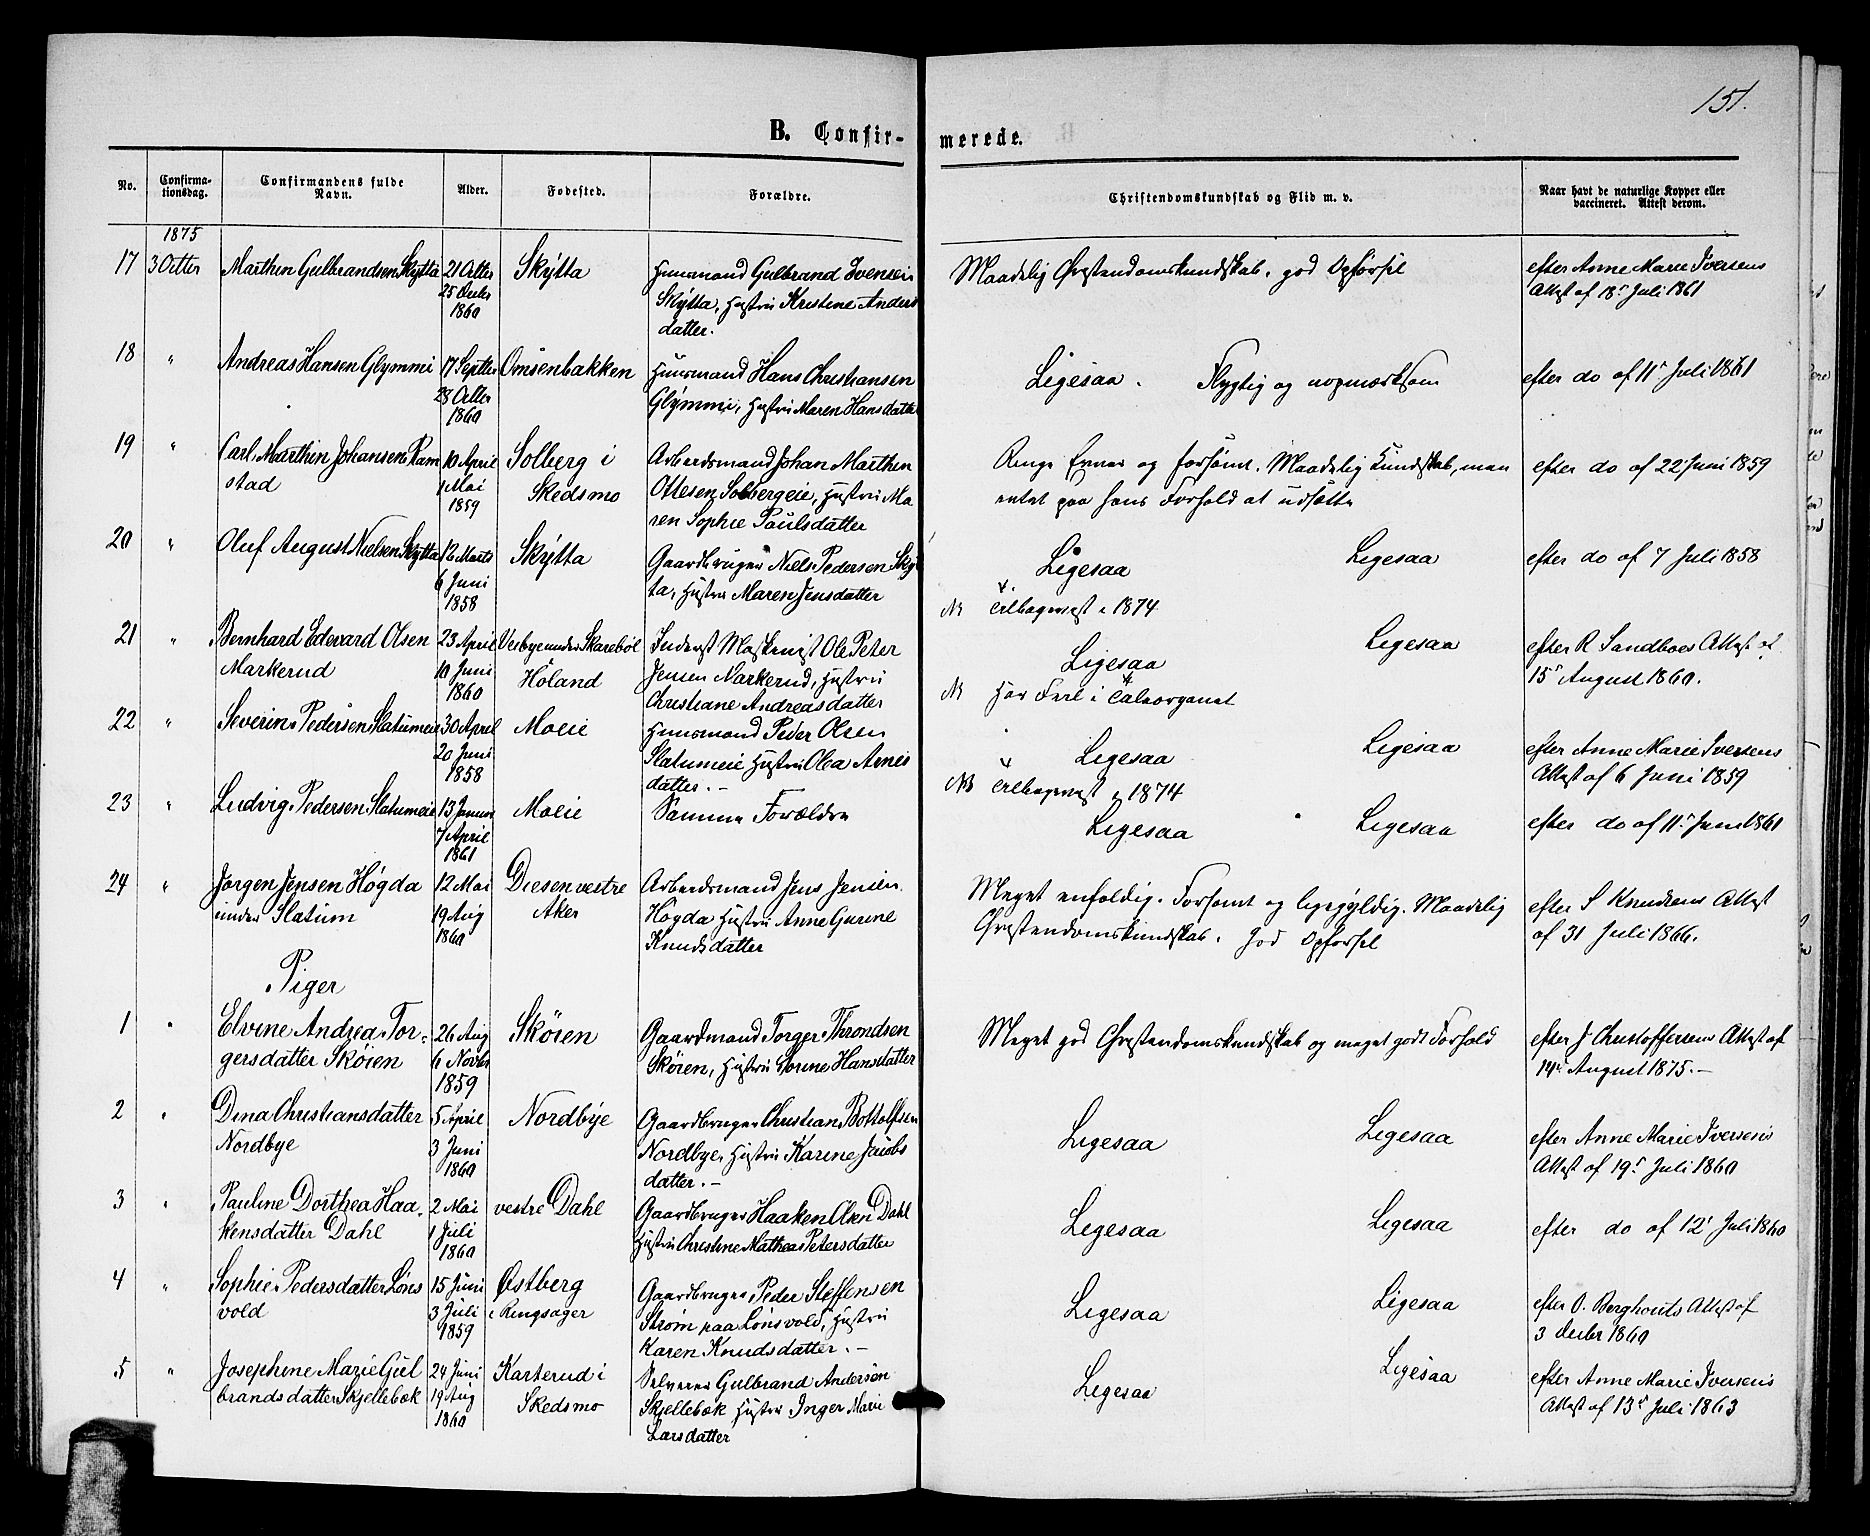 151.
B. Confir-
merede.
No.
Confirma-
tionsdag.
Confirmandens fulde
Navn.
Alder.
Fødested.
Forældre.
Christendomskundskab og Flid m. v.
Naar havt de naturlige Kopper eller
vaccineret. Attest derom.
1875
17 3 Octbr Marthin Gulbrandsen Skytta 21 Octbr Skÿtta Huusmand Gulbrand Ivensen Maadelig Christendomskundskab. god Opførsel efter Anne Marie Iversens
25 Decbr Skÿtta, Hustru Kristine Anders Attest af 18de Juli 1861
1860 datter.
18 " Andreas Hansen Glymmi 17 Septbr Omsenbakken Huusmand Hans Christiansen Ligesaa. Flygtig og uopmærksom efter do af 11te Juli 1861
28 Octbr Glÿmmi, Hustru Maren Hansdatter
1860
19 " Carl Marthin Johansen Ram 10 April Solberg i Arbeidsmand Johan Marthin Ringe Evner og forsømt. Maadelig Kundskab, men efter do af 22 Juni 1859
stad 1 Mai Skedsmo Ottesen Solbergeie, Hustru Ma intet paa hans Forhold at udsætte
1859 ren Sophie Paulsdatter
20 " Oluf August Nielsen Skÿtta 12 Marts Skÿtta Gaardbruger Niels Pedersen Skÿt Ligesaa Ligesaa efter do af 7 Juli 1858
6 Juni ta, Hustru Maren Jensdatter
1858 NB Tilbagevist i 1874
21 " Bernhard Edevard Olsen 23 April Vesbye under Skarebøl Inderst Maskinist Ole Peter Ligesaa Ligesaa efter R Sandboes Attest af
Markerud 10 Juni Høland Jensen Markerud, Hustru 15de August 1860.
1860 Christiane Andreasdatter NB Har Feil i Taleorganet
22 " Severin Pedersen Slatumeie 30 April Moeie Huusmand Peder Olsen Ligesaa Ligesaa efter Anne Marie Iversens
20 Juni Slatumeie Hustru Olea Arnes Attest af 6 Juni 1859
1858 datter. - NB Tilbagevist i 1874
23 " Ludvig Pedersen Slatumeie 13 Januar Moeie Samme Forældre Ligesaa Ligesaa efter do af 11te Juni 1861
7 April
1861
24 " Jørgen Jensen Høgda 12 Mai Diesen vestre Arbeidsmand Jens Jensen Meget enfoldig. Forsømt og ligegyldig. Maadelig efter S Knudsens Attest
under Slatum 19 Aug Aker Høgda Hustru Anne Gurine Christendomskundskab. God Opførsel af 31 Juli 1866.
1860 Knudsdatter
Piger
1 " Elvine Andrea Tor- 26 Aug Skøien Gaardmand Torger Throndsen Meget god Christendomskundskab og meget godt Forhold efter J Christoffersens Attest af
gersdatter Skøien 6 Novbr Skøien, Hustru Gorine Hansdatter 14de August 1875. -
1859
2 " Dina Christiansdatter 5 April Nordbÿe Gaardbruger Christian Bottolfsen Ligesaa Ligesaa efter Anne Marie Iversens
Nordbye 3 Juni Nordbye, Hustru Karine Jacobs Attest af 19de Juli 1860
1860 datter. -
3 " Pauline Dorthea Haa 2 Mai vestre Dahl Gaardbruger Haaken Olsen Dahl Ligesaa Ligesaa efter do af 12te Juli 1860
kensdatter Dahl 1 Juli Hustru Christine Mathea Petersdatter
1860
4 " Sophie Pedersdatter Løns 15 Juni Østberg Gaardbruger Peder Steffensen Ligesaa Ligesaa efter O. Berghouts Attest af
vold 3 Juli i Ringsager Strøm paa Lønsvold, Hustru 3 Decbr 1860
1859 Karen Knudsdatter. -
5 " Josephine Marie Gul 24 Juni Karterud i Selveier Gulbrand Andersøn Ligesaa Ligesaa efter Anne Marie Iversens
brandsdatter Skjellebæk 19 Aug Skedsmo Skjellebæk Hustru Inger Marie Attest af 13de Juli 1863
1860 Larsdatter